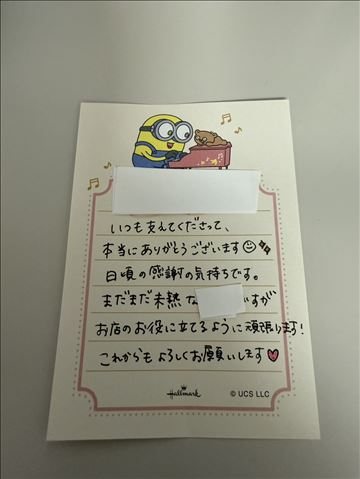 いつも支えてくださって、
本当にありがとうございます
日頃の感謝の気持ちです。
まだまだ未熟な いすが
お店のお役に立てるように頑張ります!
これからもよろしくお願いします
Hallmark
© UCS LLC